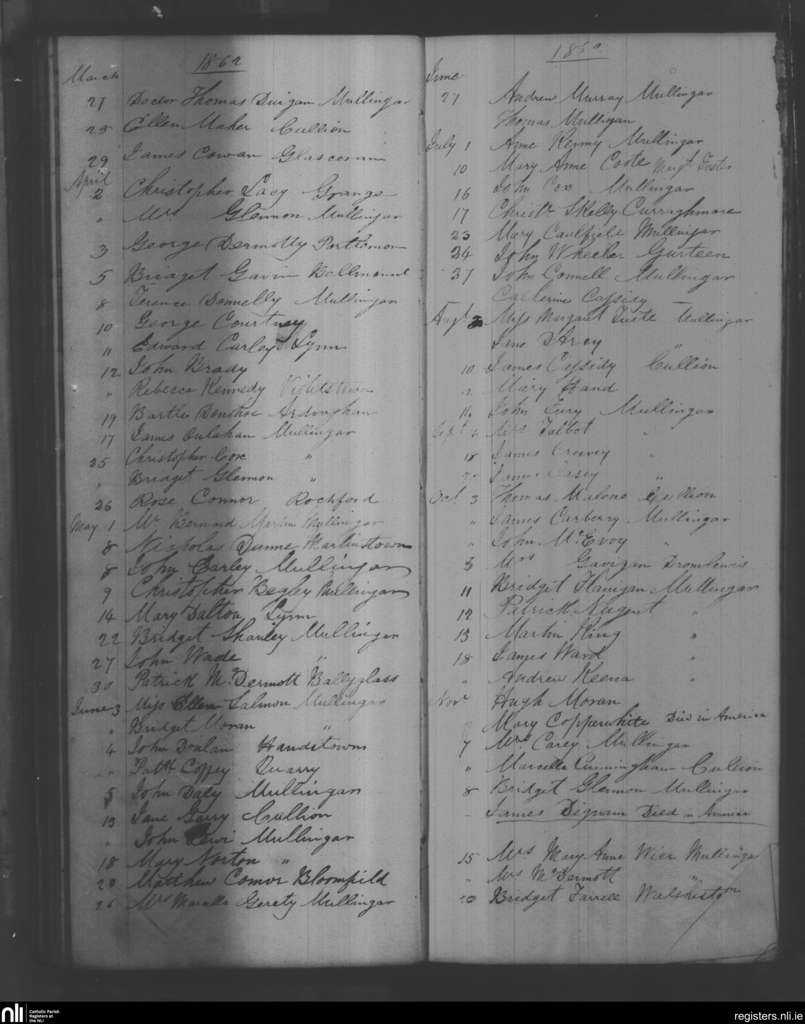 1862
March
27 Doctor Thomas Duigan Mullingar
25 Ellen Maher Cullion
29 James Cowan
April
2 Christopher Lacy Grange
" Mrs Glennon Mullingar
3 George Dermotty Portlemon
5 Bridget Gavin
8 Terence Donnelly Mullingar
10 George Courtney
11 Edward Curley Lynn
12 John Brady
" Rebecca Kennedy
19 Barthw Donohoe
17 James Culahan Mullingar
25 Christopher Coxe "
" Bridget Glennon "
26 Rose Connor Rochford
May 1 Mr Bernard Martin Mullingar
8 Nicholas Dunne Martinstown
8 John Carley Mullingar
9 Christopher Begley Mullingar
14 Mary Dalton Lynn
22 Bridget Shanley Mullingar
27 John Wade "
30 Patrick McDermott Ballyglass
June 3 Miss Ellen Salmon Mullingar
" Bridget Moran "
4 John Donlan Handstown
" Patk Coffey Quarry
5 John Daly Mullingar
13 Jane Garry Cullion
" John Mullingar
18 Mary Norton "
20 Matthew Comor Bloomfield
26 Mrs Marcella Gerety Mullingar
1862
June
27 Andrew Murray Mullingar
Thomas Mulligan
July 1 Anne Kenny Mullingar
10 Mary Anne Coote
16 John Cox Mullingar
17 Christr Skelly Curraghmore
23 Mary Caulfield Mullingar
24 John Wheeler Gurteen
31 John Connell Mullingar
Catherine Cassidy
Augt 3 Miss Margaret Tuite Mullingar
Jane Arcy "
10 James Cassidy Cullion
" Mary Hand
John Mullingar
Sept Mrs Talbot "
18 James Creevy "
James Casey "
Oct 3 Thomas Malone Cullion
" James Carberry Mullingar
" John McEvoy "
3 Mrs Gavigan
11 Bridget Flanigan Mullingar
12 Patrick Nugent "
13 Martin King "
18 James Ward "
" Andrew Keena "
Novr Hugh Moran
Mary Copperwhite Died in America
7 Mrs Carey Mullingar
" Marcella Cunningham Cullion
8 Bridget Glennon Mullingar
James Dignam Died in America
15 Mrs Mary Anne Wier Mullingar
" Mrs McDermott "
20 Bridget Farrell Walshestown
nli
Catholic Parish
Registers at
the NLI
registers.nli.ie